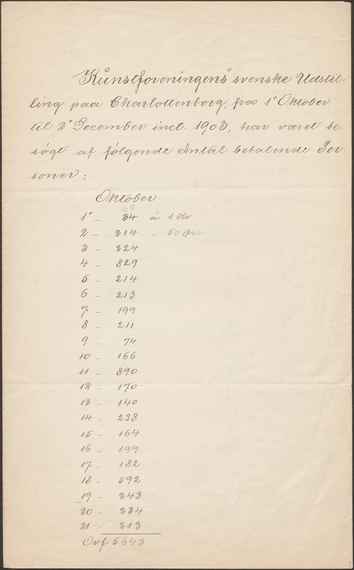 Kunstforeningens svenske Udstil-
ling paa Charlottenborg, fra 1' Oktober
til 2' December incl. 1903, har været be-
søgt af følgende Antal betalende Per
soner:
Oktober
1' - 34 à 1 Kr
2 - 214 - 50 Øre
3 - 224
4 - 829
5 - 214
6 - 213
7 - 199
8 - 211
9 - 74
10 - 166
11 - 890
12 - 170
13 - 140
14 - 238
15 - 164
16 - 199
17 - 182
18 - 592
19 - 243
20 - 234
21 - 213
Ovf 5643